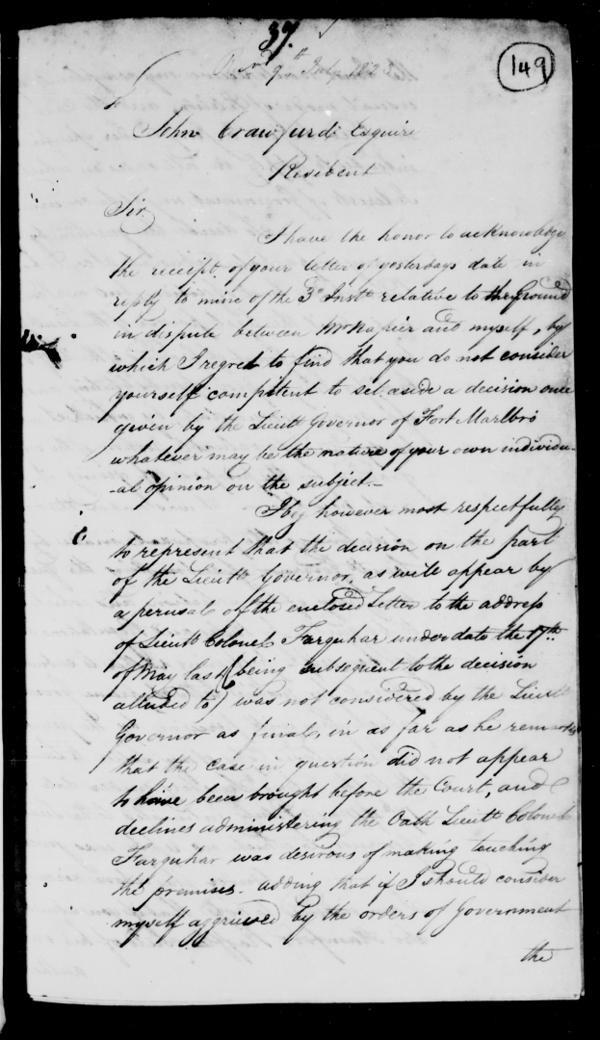 39.
149
9th July 1823
To
John Crawfurd Esquire
Resident
Sir,
I have the honor to acknowledge
the receipt of your letter of yesterdays date in
reply to mine of the 3d Instt. relative to the Ground
in dispute between Mr Napier and myself, by
which I regret to find that you do not consider
yourself competent to set aside a decision once
given by the Lieutt Governor of Fort Marlbro
whatever may be the nature of your own individu-
-al opinion on the subject.-
I beg however most respectfully
to represent that the decision on the part
of the Lieutt Governor, as will appear by
a perusal of the enclosed Letter to the address
of Lieutt Colonel Farquhar under date the 17th
of May last (being subsequent to the decision
alluded to) was not considered by the Lieutt
Governor as final, in as far as he remarks
that the case in question did not appear
to have been brought before the Court, and
declines administering the Oath Lieutt Colonel
Farquhar was desirous of making touching
the premises. adding that if I should consider
myself aggrieved by the orders of Government
the